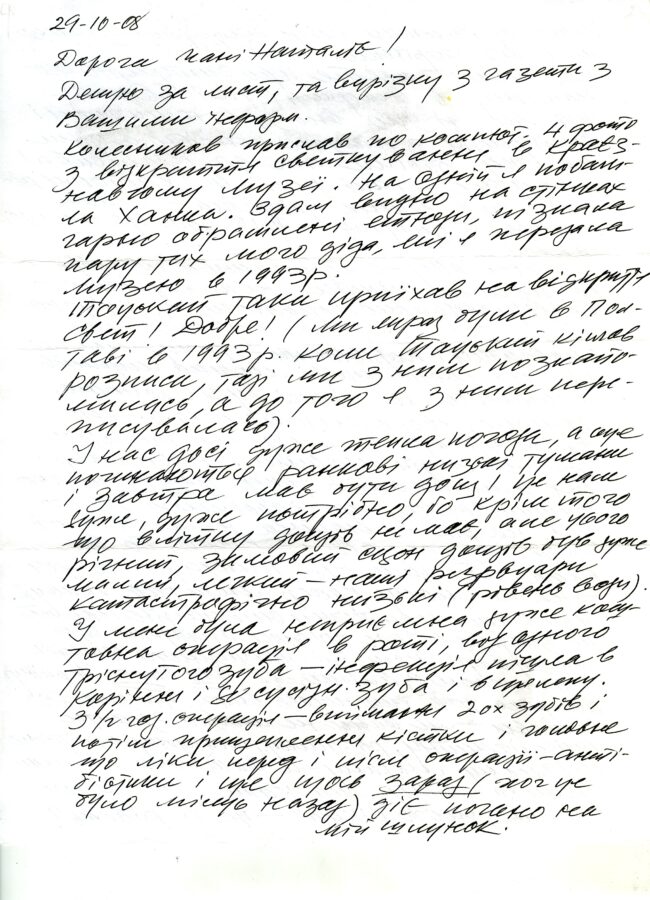 29-10-08
Дорога пані Наталіє!
Дякую за лист, та вирізку з газети з
Вашими інформ.
Колесников прислав по компют. 4 фото
з відкриття святкування в Краєз-
навчому музеї. На одній я побачи-
ла Ханка. Ззаді видно на стінках
гарно обрамлені етюди, пізнала
пару тих мого діда, які я передала
музею в 1993р.
таки приїхав на відкриття
свят! Добре! (ми раз були в Пол-
таві в 1993р. коли кінчав
розписи, тоді ми з ним познайо-
мились, а до того я з ним пере-
писувалась).
У нас досі дуже тепла погода, а вже
починаються ранкові низькі тумани
і завтра має бути дощ! Це нам
дуже, дуже потрібно, бо крім того
що влітку дощів немає, але цього
річний, зимовий сезон дощів був дуже
малий, легкий – наші резервуари
катастрофічно низькі (рівень води).
У мене була неприємна дуже кош-
товна операція в роті, від одного
тріснутого зуба – інфекція пішла в
коріння і до сусідн. зуба і в щелепу.
3½ год. операція – виймання 2ох зубів і
потім прищеплення кістки і головне
що ліки перед і після операції – анти-
біотики і ще щось зараз (хоч це
було місяць назад) діє погано на
мій шлунок.